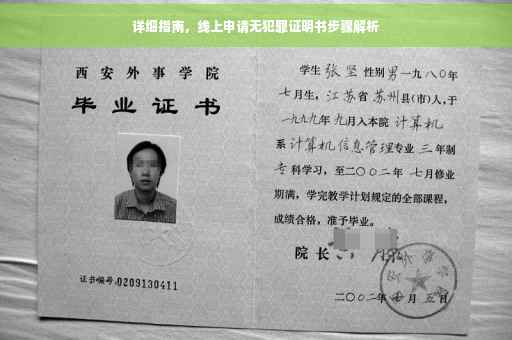 详细指南，线上申请无犯罪证明书步骤解析
西安外事学院
毕业证书
证书编号:0209130411
学生张坚性别男一九八〇年
七月生，江苏省苏州县(市)人,于
一九九九年九月入本院计算机
系计算机信息管理专业三年制
专科学习，至二〇〇二年七月修业
期满，学完教学计划规定的全部课程，
成绩合格，准予毕业。
院长
二〇〇二年 月五日